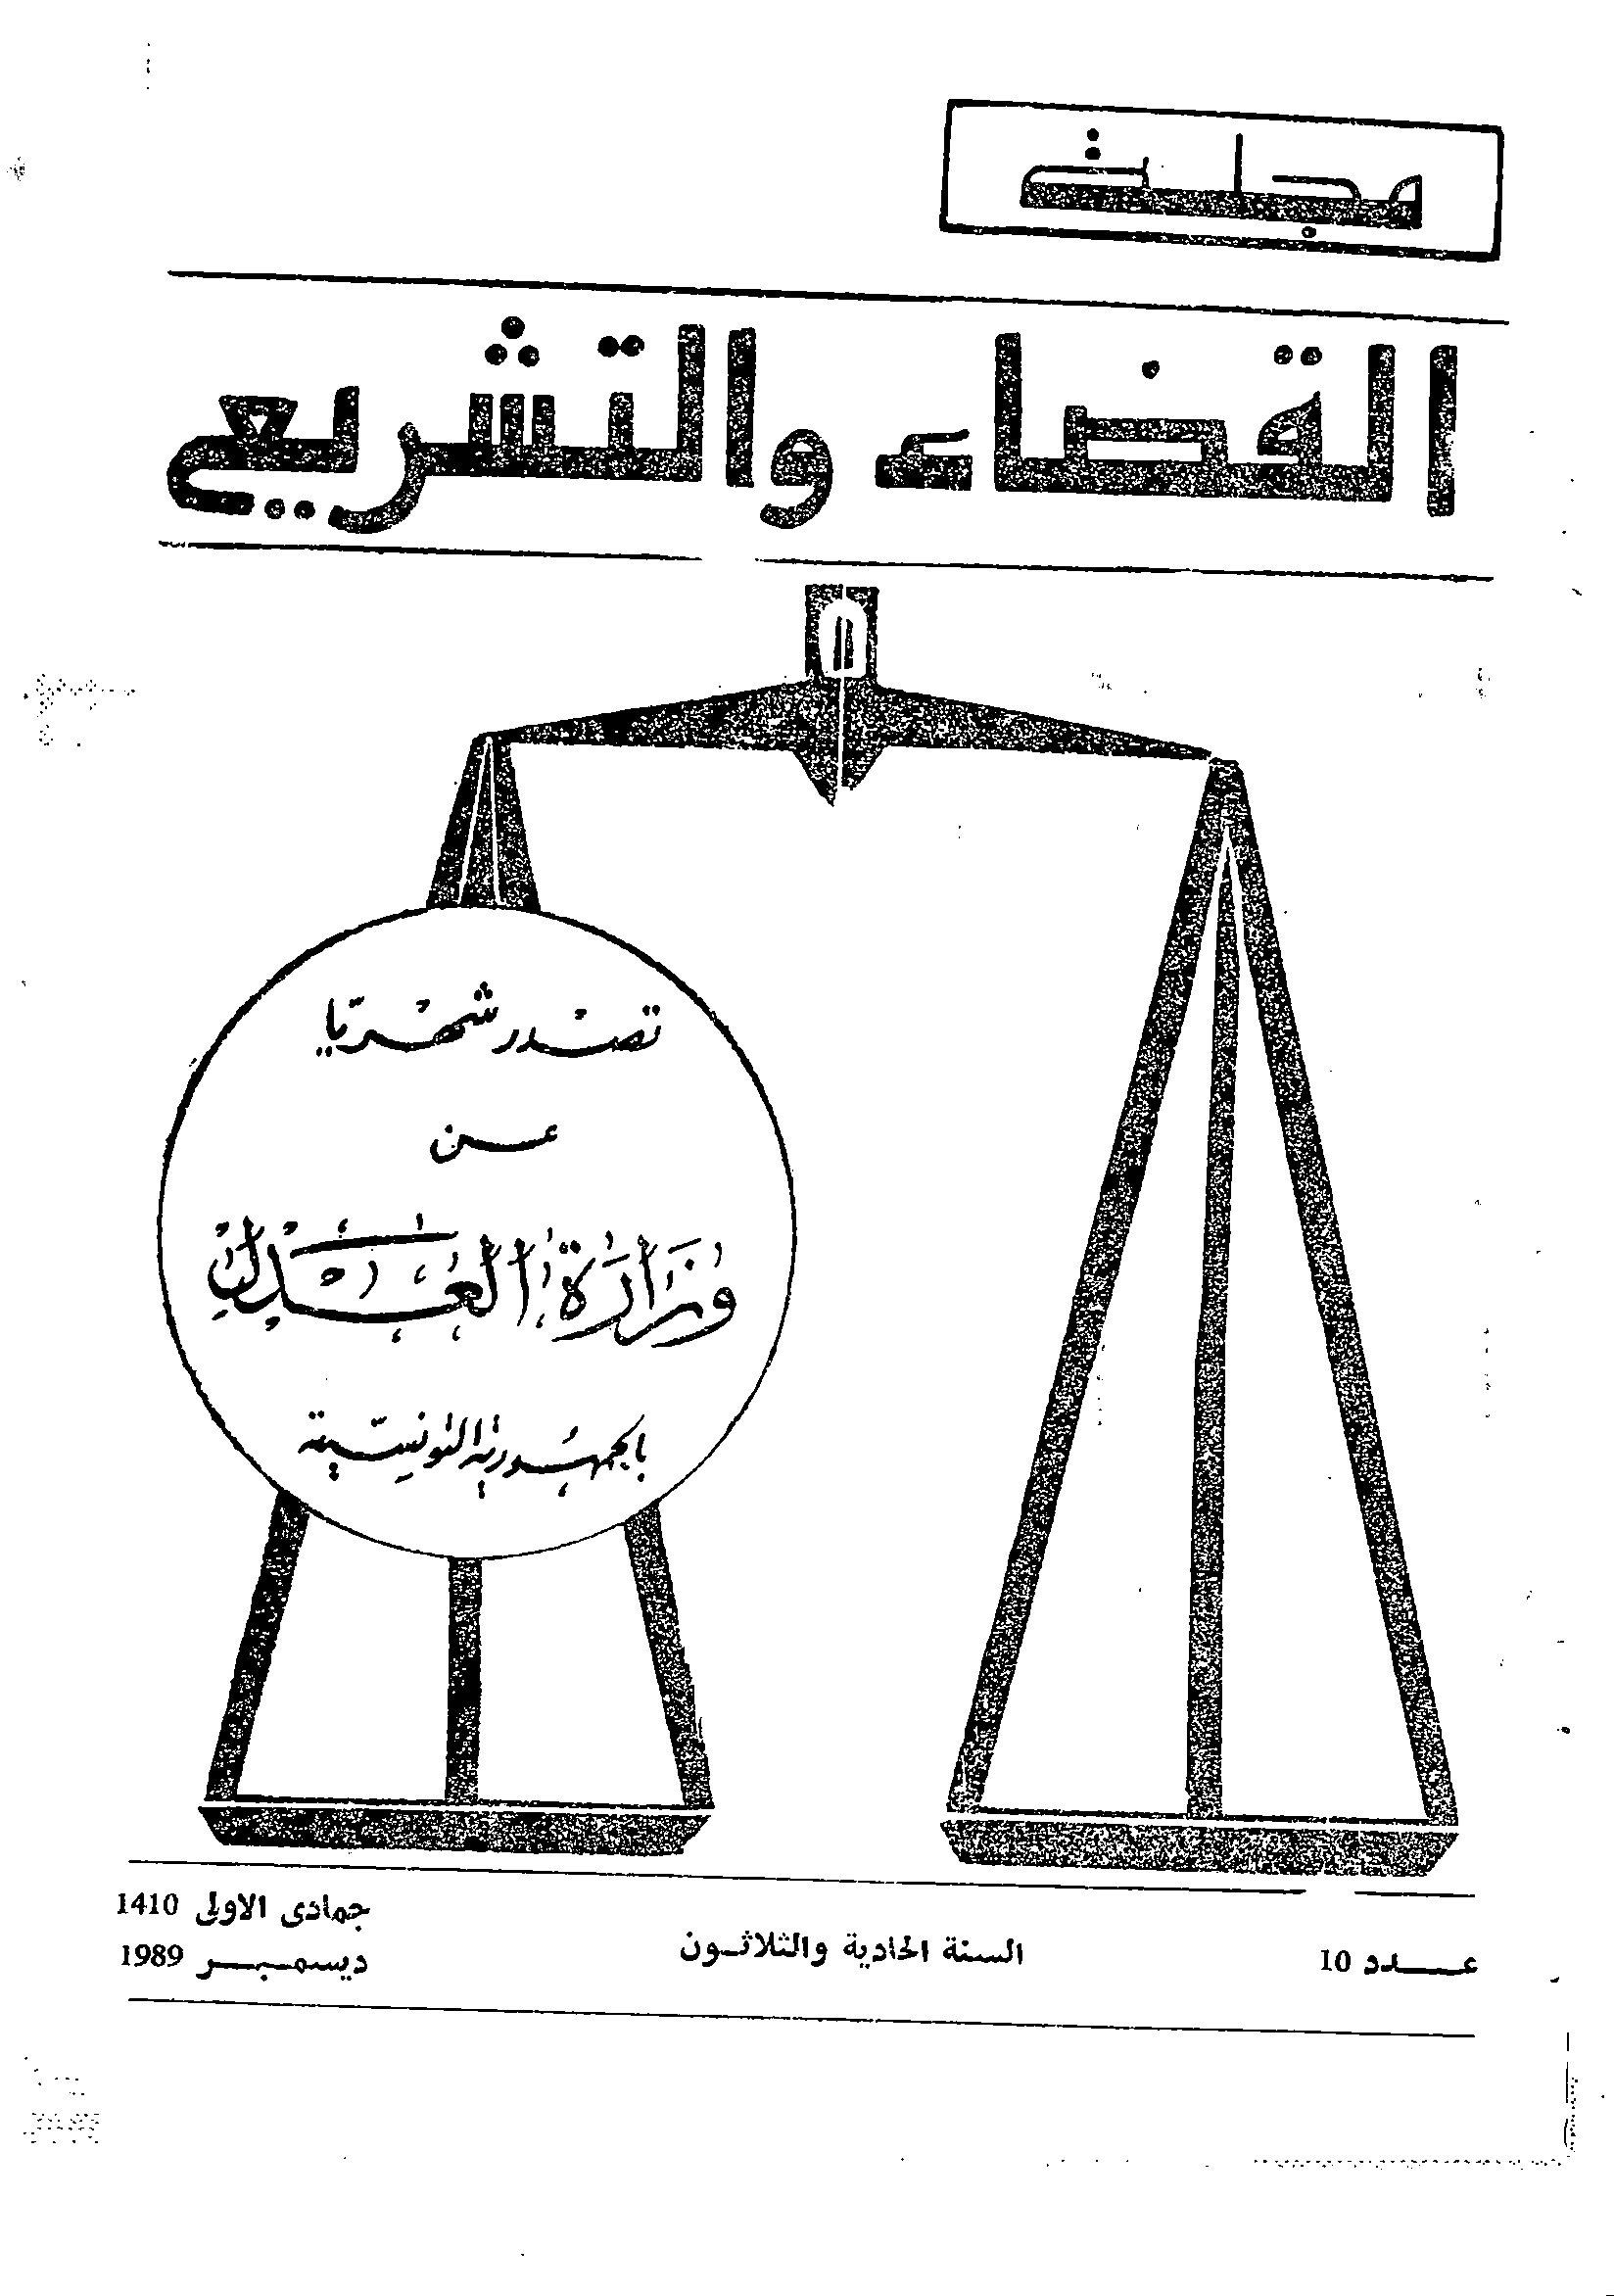 مجلة
القضاء والتشريع
تصدر شهريّا
عن
وزارة العدل
بالجمهورية التونسيّة
عدد 10
السنة الحادية والثلاثون
جمادى الاولى 1410
ديسمبر 1989